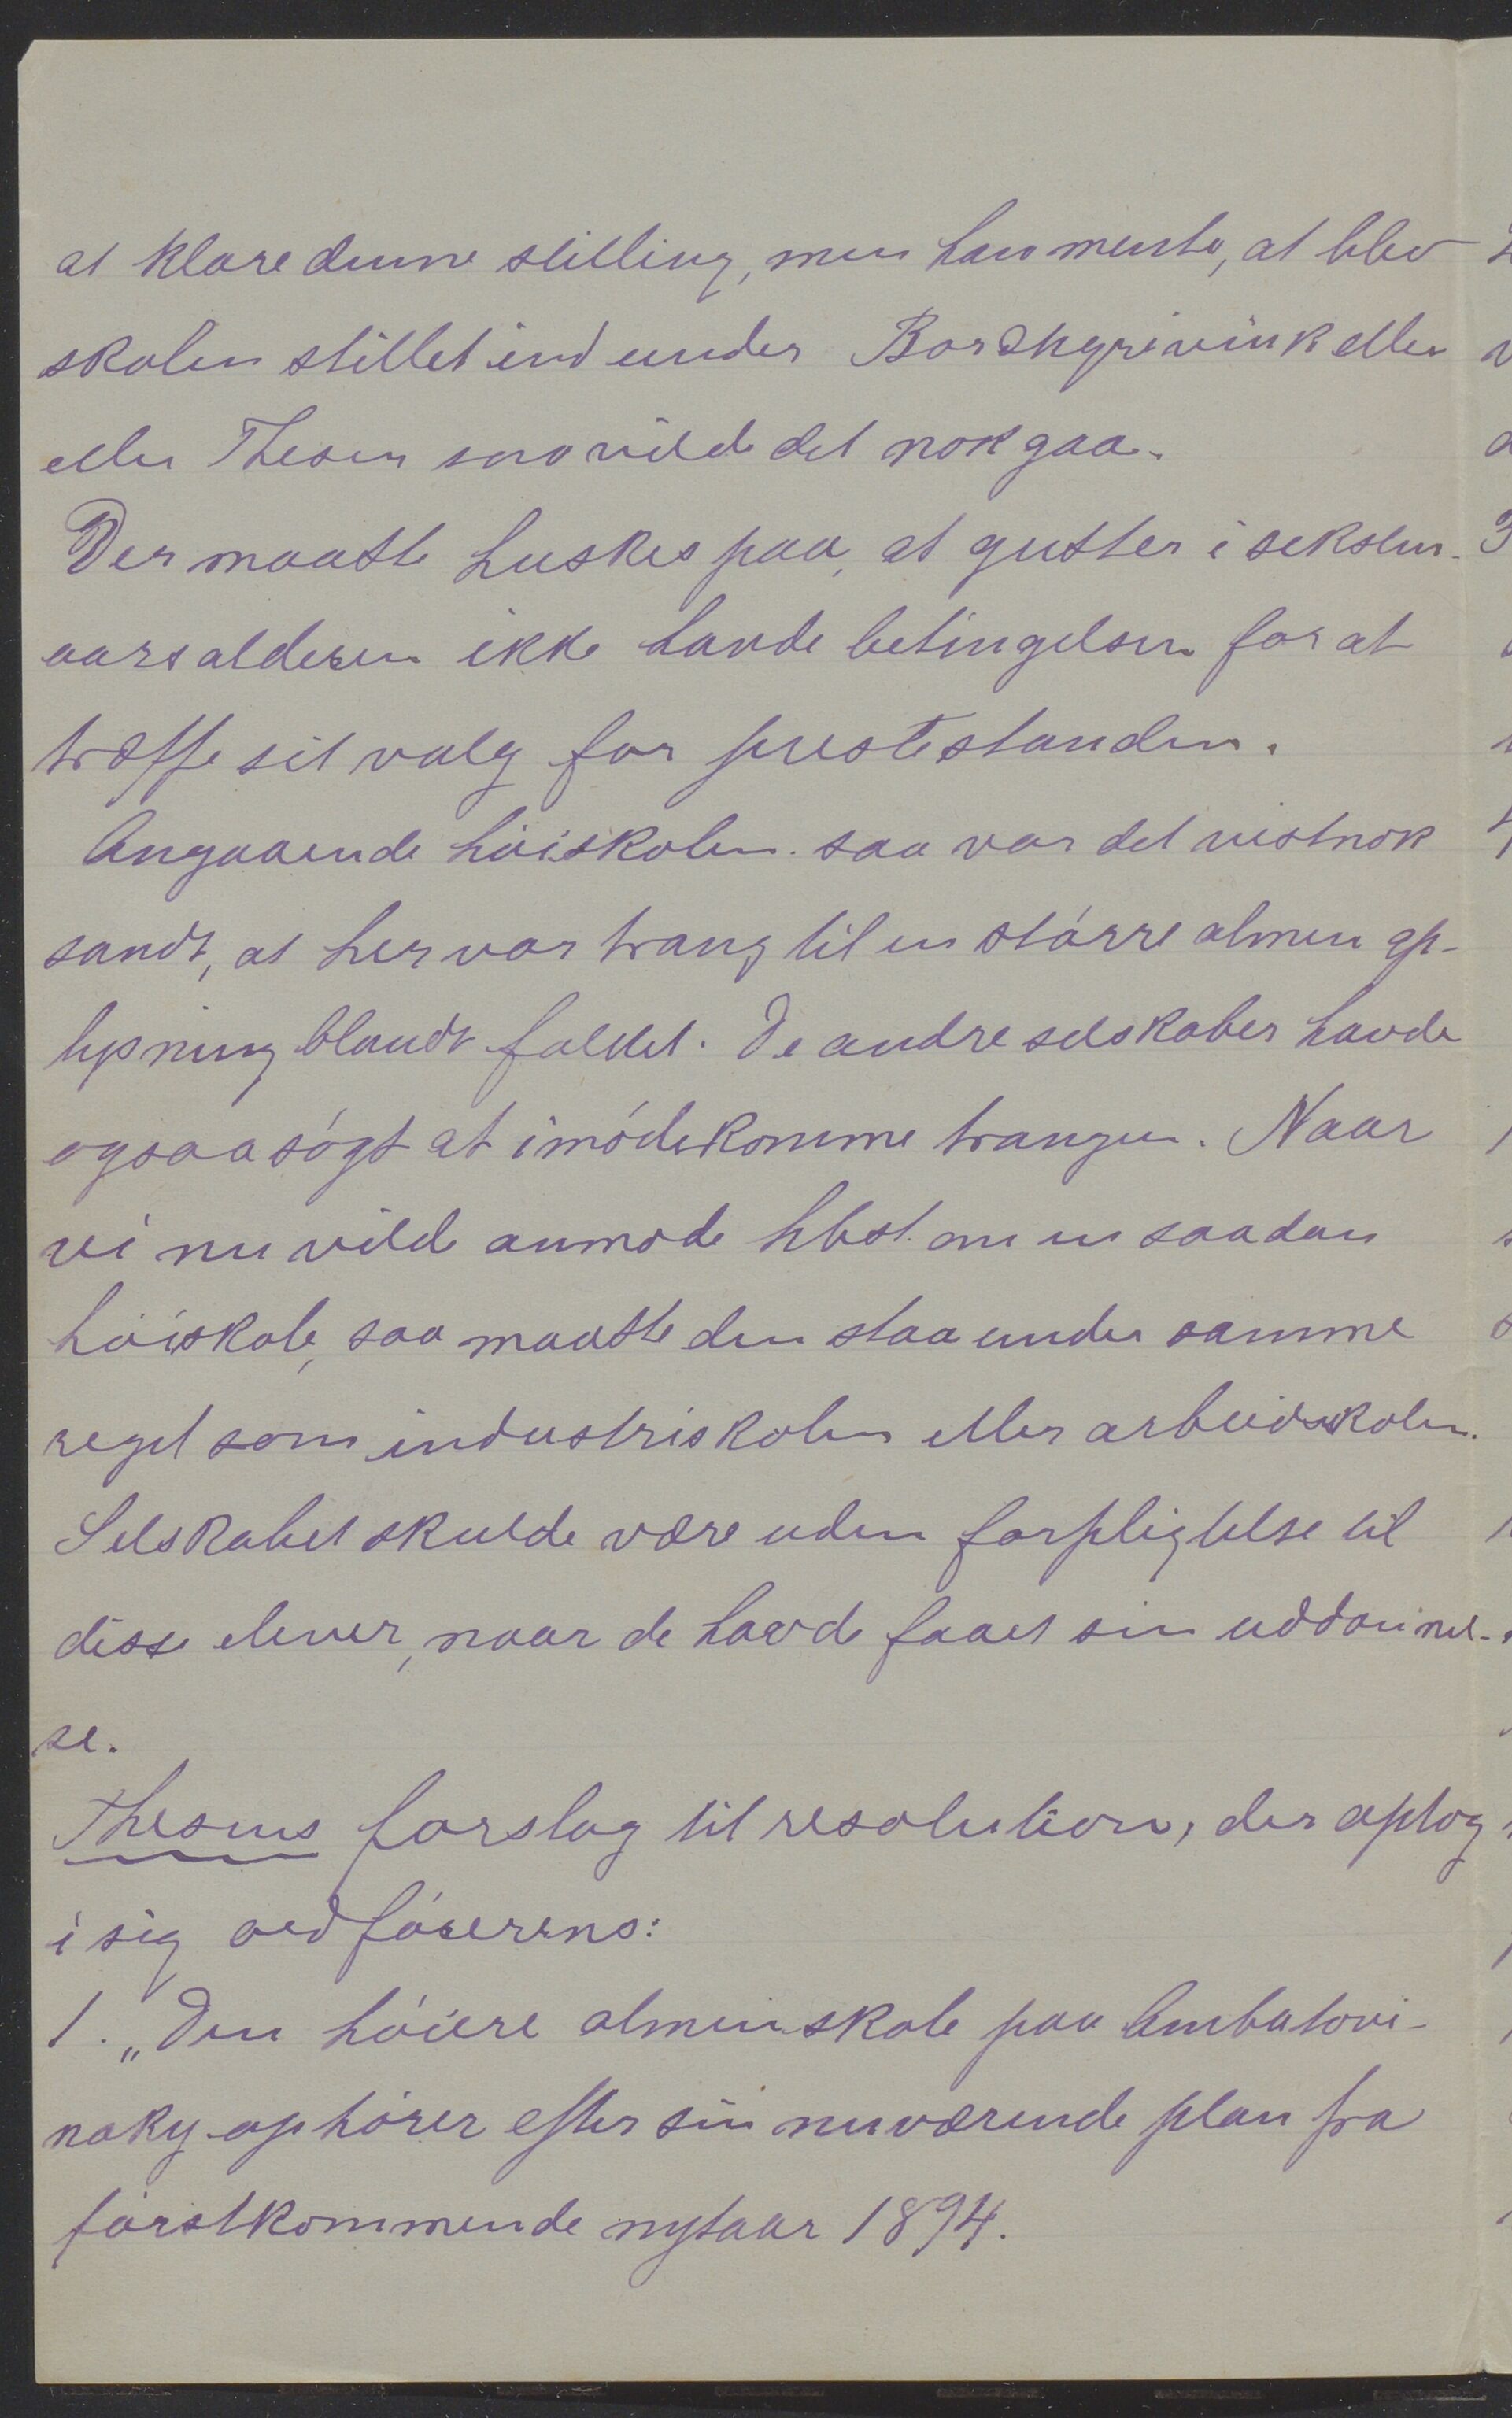 at klare denne stilling, men han mente, at blev
skolen stillet ind under Borchgrevink eller
eller Thesen saa vilde det nok gaa.
Der maatte huskes paa, at gutter i seksten-
aarsalderen ikke havde betingelsen for at
træffe sit valg for prestestanden.
Angaaende höiskolen. saa var det vistnok
sandt, at her var trang til en större almen op-
lysning blandt folket. De andre selskaber havde
ogsaa sögt at imödekomme trangen. Naar
vi nu vilde anmode hbst. om en saadan
höiskole, saa maatte den staa under samme
regel som industriskolen eller arbeidsskolen.
Selskabet skulde være uden forpligtelse til
disse elever, naar de havde faaet sin uddannel-
se.
Thesens forslag til resolution, der optog
i sig ordförerens:
1. „Den höiere almenskole paa Ambatovi-
naky ophörer efter sin nuværende plan fra
förstkommende nytaar 1894.